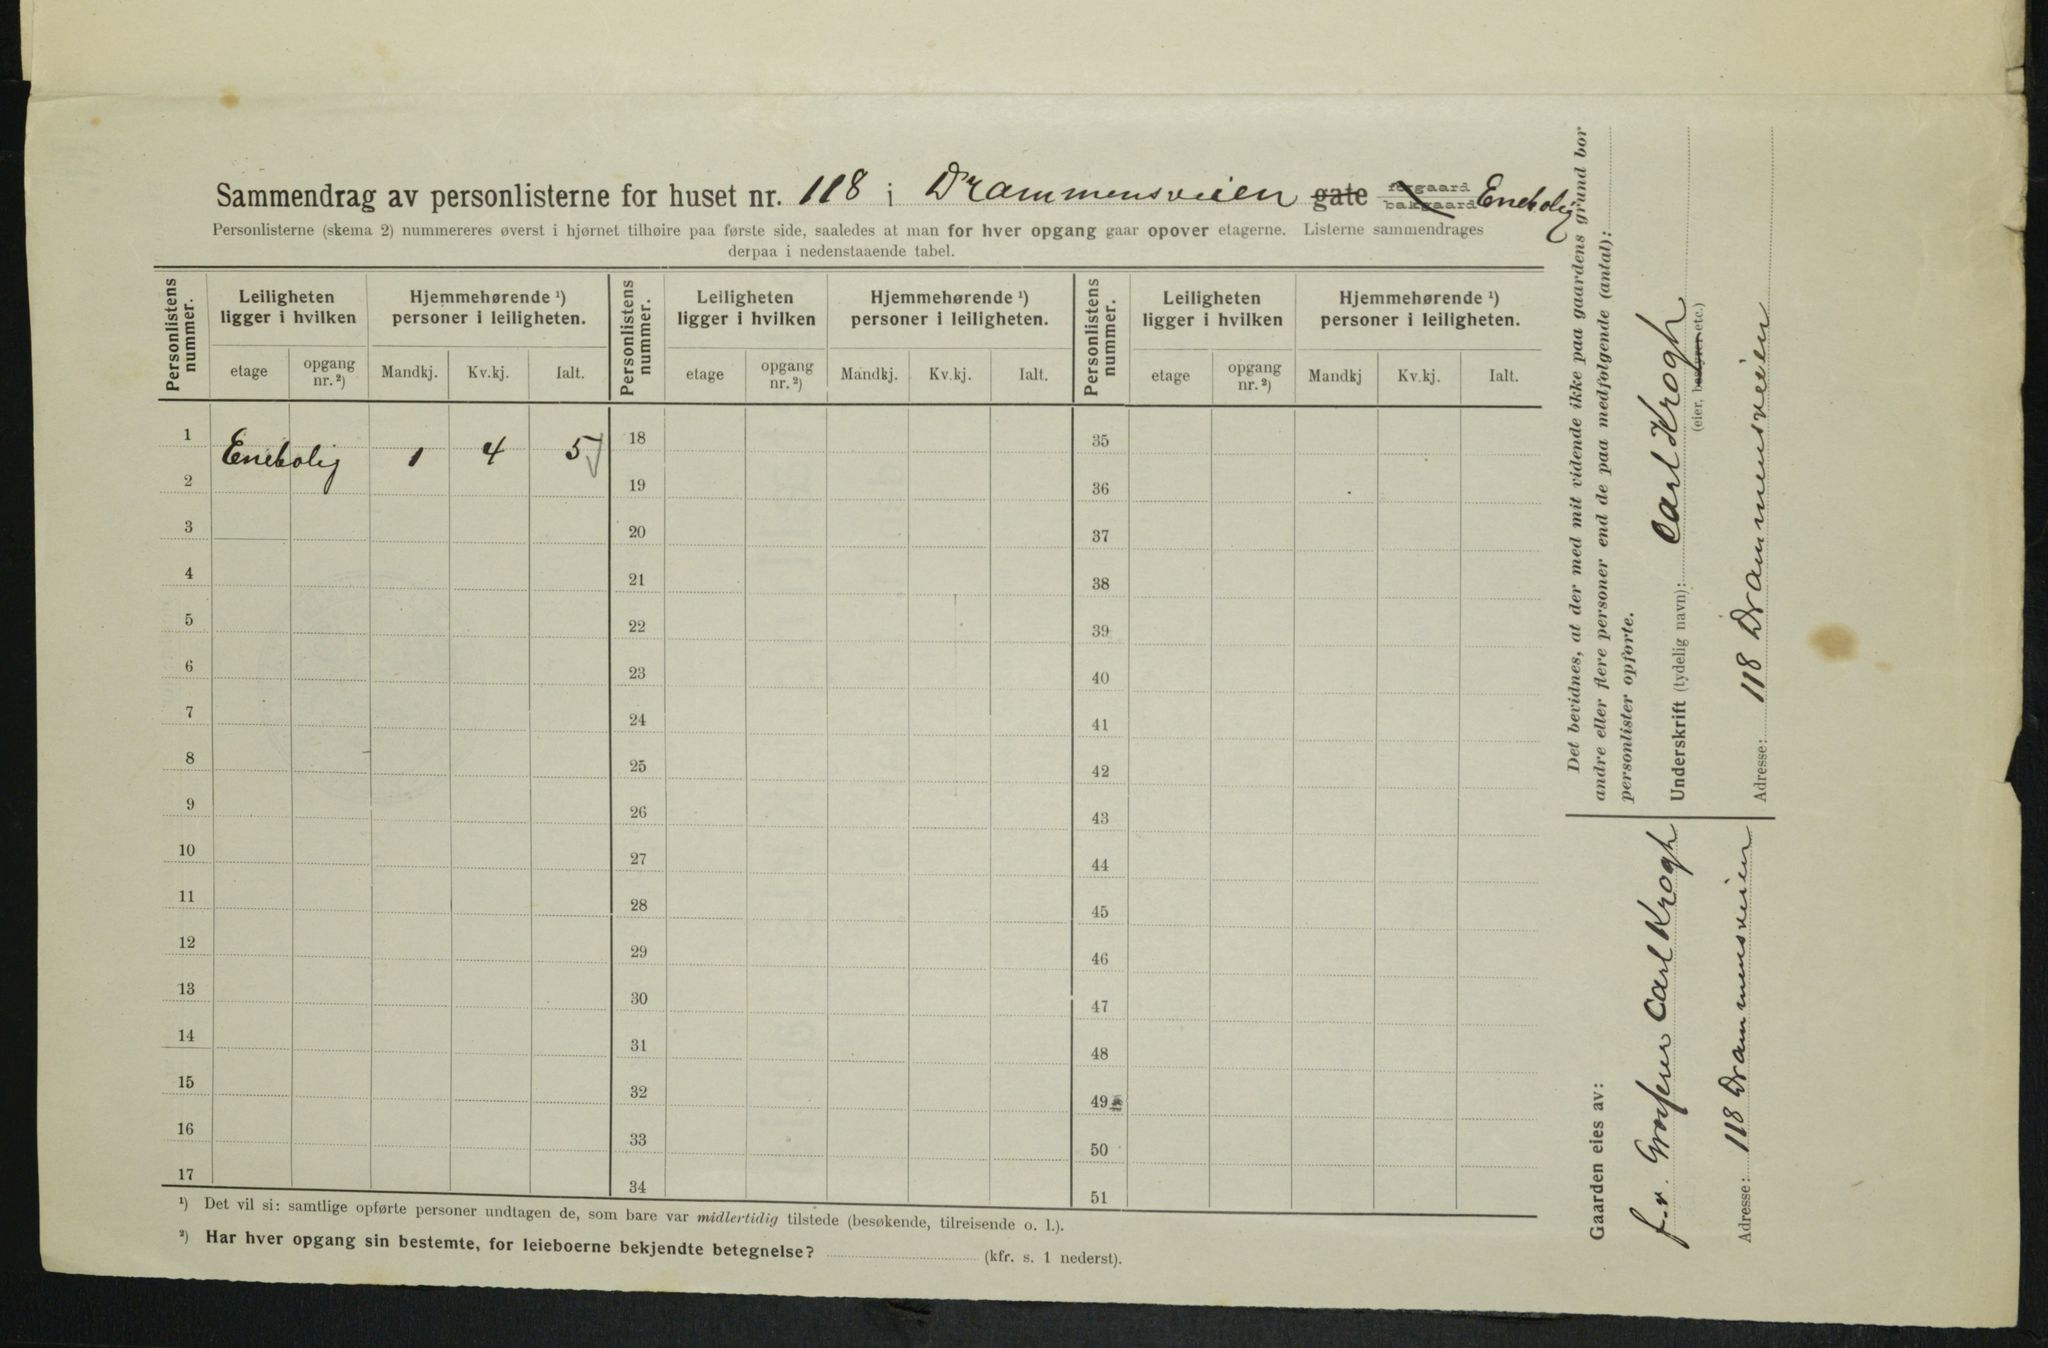 Sammendrag av personlisterne for huset nr. 118 i Drammensveien gate forgaard bakgaard Enebolig
Personlisterne (skema 2) nummereres øverst i hjørnet tilhøire paa første side, saaledes at man for hver opgang gaar opover etagerne. Listerne sammendrages
derpaa i nedenstaaende tabel.
Personlistens nummer. Leiligheten ligger i hvilken Hjemmehørende ¹) personer i leiligheten. Personlistens nummer. Leiligheten ligger i hvilken Hjemmehørende ¹) personer i leiligheten. Personlistens nummer. Leiligheten ligger i hvilken Hjemmehørende ¹) personer i leiligheten.
etage opgang nr. ²) Mandkj. Kv.kj. Ialt. etage opgang nr. ²) Mandkj. Kv.kj. Ialt. etage opgang nr. ²) Mandkj Kv.kj. Ialt.
1 Enebolig 1 4 5 18 35
2 19 36
3 20 37
4 21 38
5 22 39
6 23 40
7 24 41
8 25 42
9 26 43
10 27 44
11 28 45
12 29 46
13 30 47
14 31 48
15 32 49
16 33 50
17 34 51
¹) Det vil si: samtlige opførte personer undtagen de, som bare var midlertidig tilstede (besøkende, tilreisende o. l.).
²) Har hver opgang sin bestemte, for leieboerne bekjendte betegnelse? (kfr. s. 1 nederst).
Det bevidnes, at der med mit vidende ikke paa gaardens grund bor
andre eller flere personer end de paa medfølgende (antal):
personlister opførte.
Underskrift (tydelig navn): Carl Krogh
(eier, bestyrer etc.)
Adresse: 118 Drammensveien
Gaarden eies av:
f.v. Grosserer Carl Krogh
Adresse: 118 Drammensveien